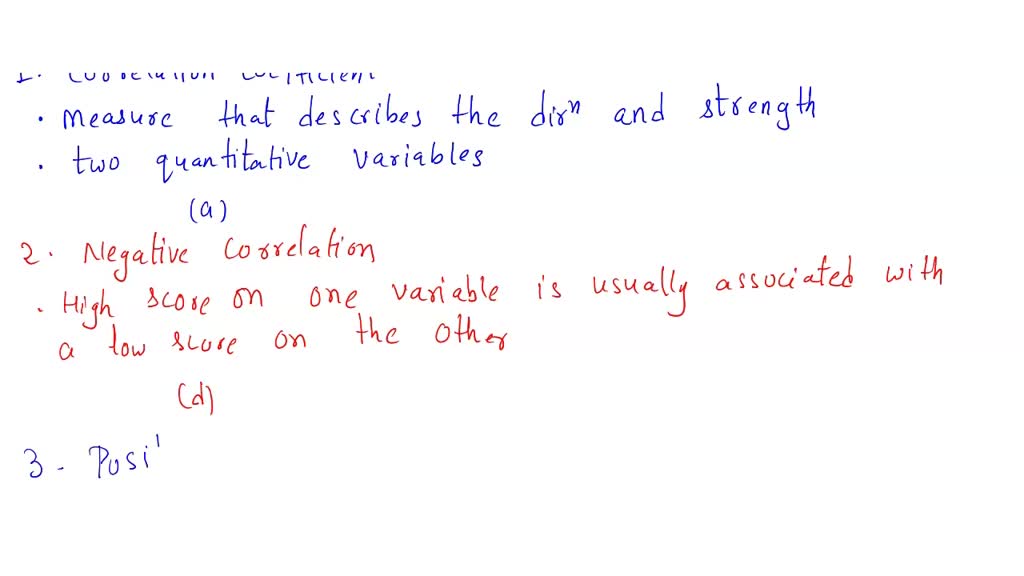 · measure that describes the dirⁿ and strength
· two quantitative variables
(a)
2. Negative Correlation
· High score on one variable is usually associated with
a low score on the other
(d)
3. Posi